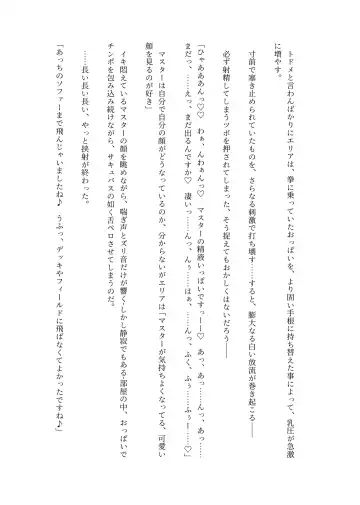 トドメと言わんばかりにエリアは、拳に乗っていたおっぱいを、より固い手根に持ち替えた事によって、乳圧が急激
に増やす。
寸前で塞き止められていたものを、さらなる刺激で打ち壊す……すると、膨大なる白い放流が巻き起こる――
必ず射精してしまうツボを押されてしまった、そう捉えてもおかしくはないだろう――
「ひゃあああんっ♡♡　わぁ、んわぁんっ♡　マスターの精液いっぱいですっーー♡　あっ、あっ……んっ、あっ……
まだっ、……えっ、まだ出るんですか♡　凄いっ……んっ、んぅ……はぁ、……んっ、ふく、ふぅ……ふぅーー♡」
マスターは自分で自分の顔がどうなっているのか、分からないがエリアは「マスターが気持ちよくなってる、可愛い
顔を見るのが好き」
イキ悶えているマスターの顔を眺めながら、喘ぎ声とズリ音だけが響く――しかし静寂でもある――部屋の中、おっぱいで
チンポを包み込み続けながら、サキュバスの如く舌ペロさせてしまうのだ。
……長い長い長い、やっと挟射が終わった。
「あっちのソファーまで飛んじゃいましたね♪　うふっ、デッキやフィールドに飛ばなくてよかったですね♪」